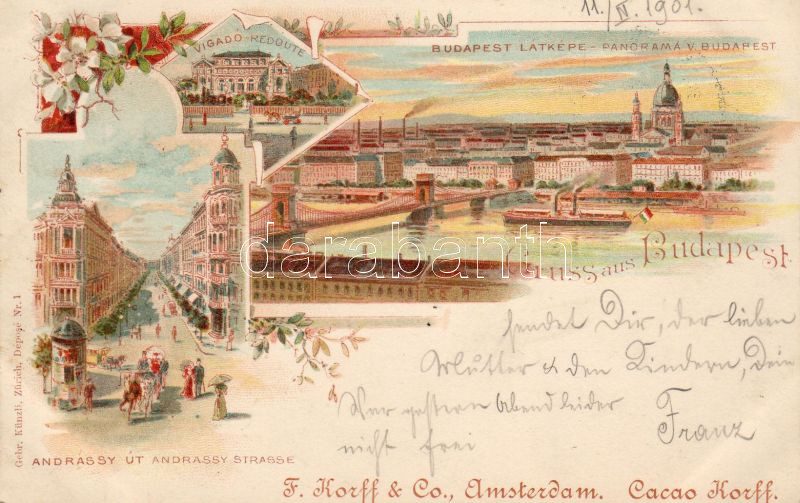 11./II. 1901.
VIGADÓ-REDOUTE
BUDAPEST LÁTKÉPE - PANORAMA V. BUDAPEST
darabanth
Gruss aus Budapest.
sendet Dir, der lieben
Mutter & den Kindern, Dein
Franz
War gestern Abend leider
nicht frei
Gebr. Künzli, Zürich, Deposé Nr. 1
ANDRÁSSY ÚT ANDRASSY STRASSE
F. Korff & Co., Amsterdam. Cacao Korff.